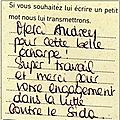 Si vous souhaitez lui écrire un petit
mot nous lui transmettrons.
Merci Audrey
pour cette belle
écharpe !
Super travail
et merci pour
votre engagement
dans la lutte
contre le Sida